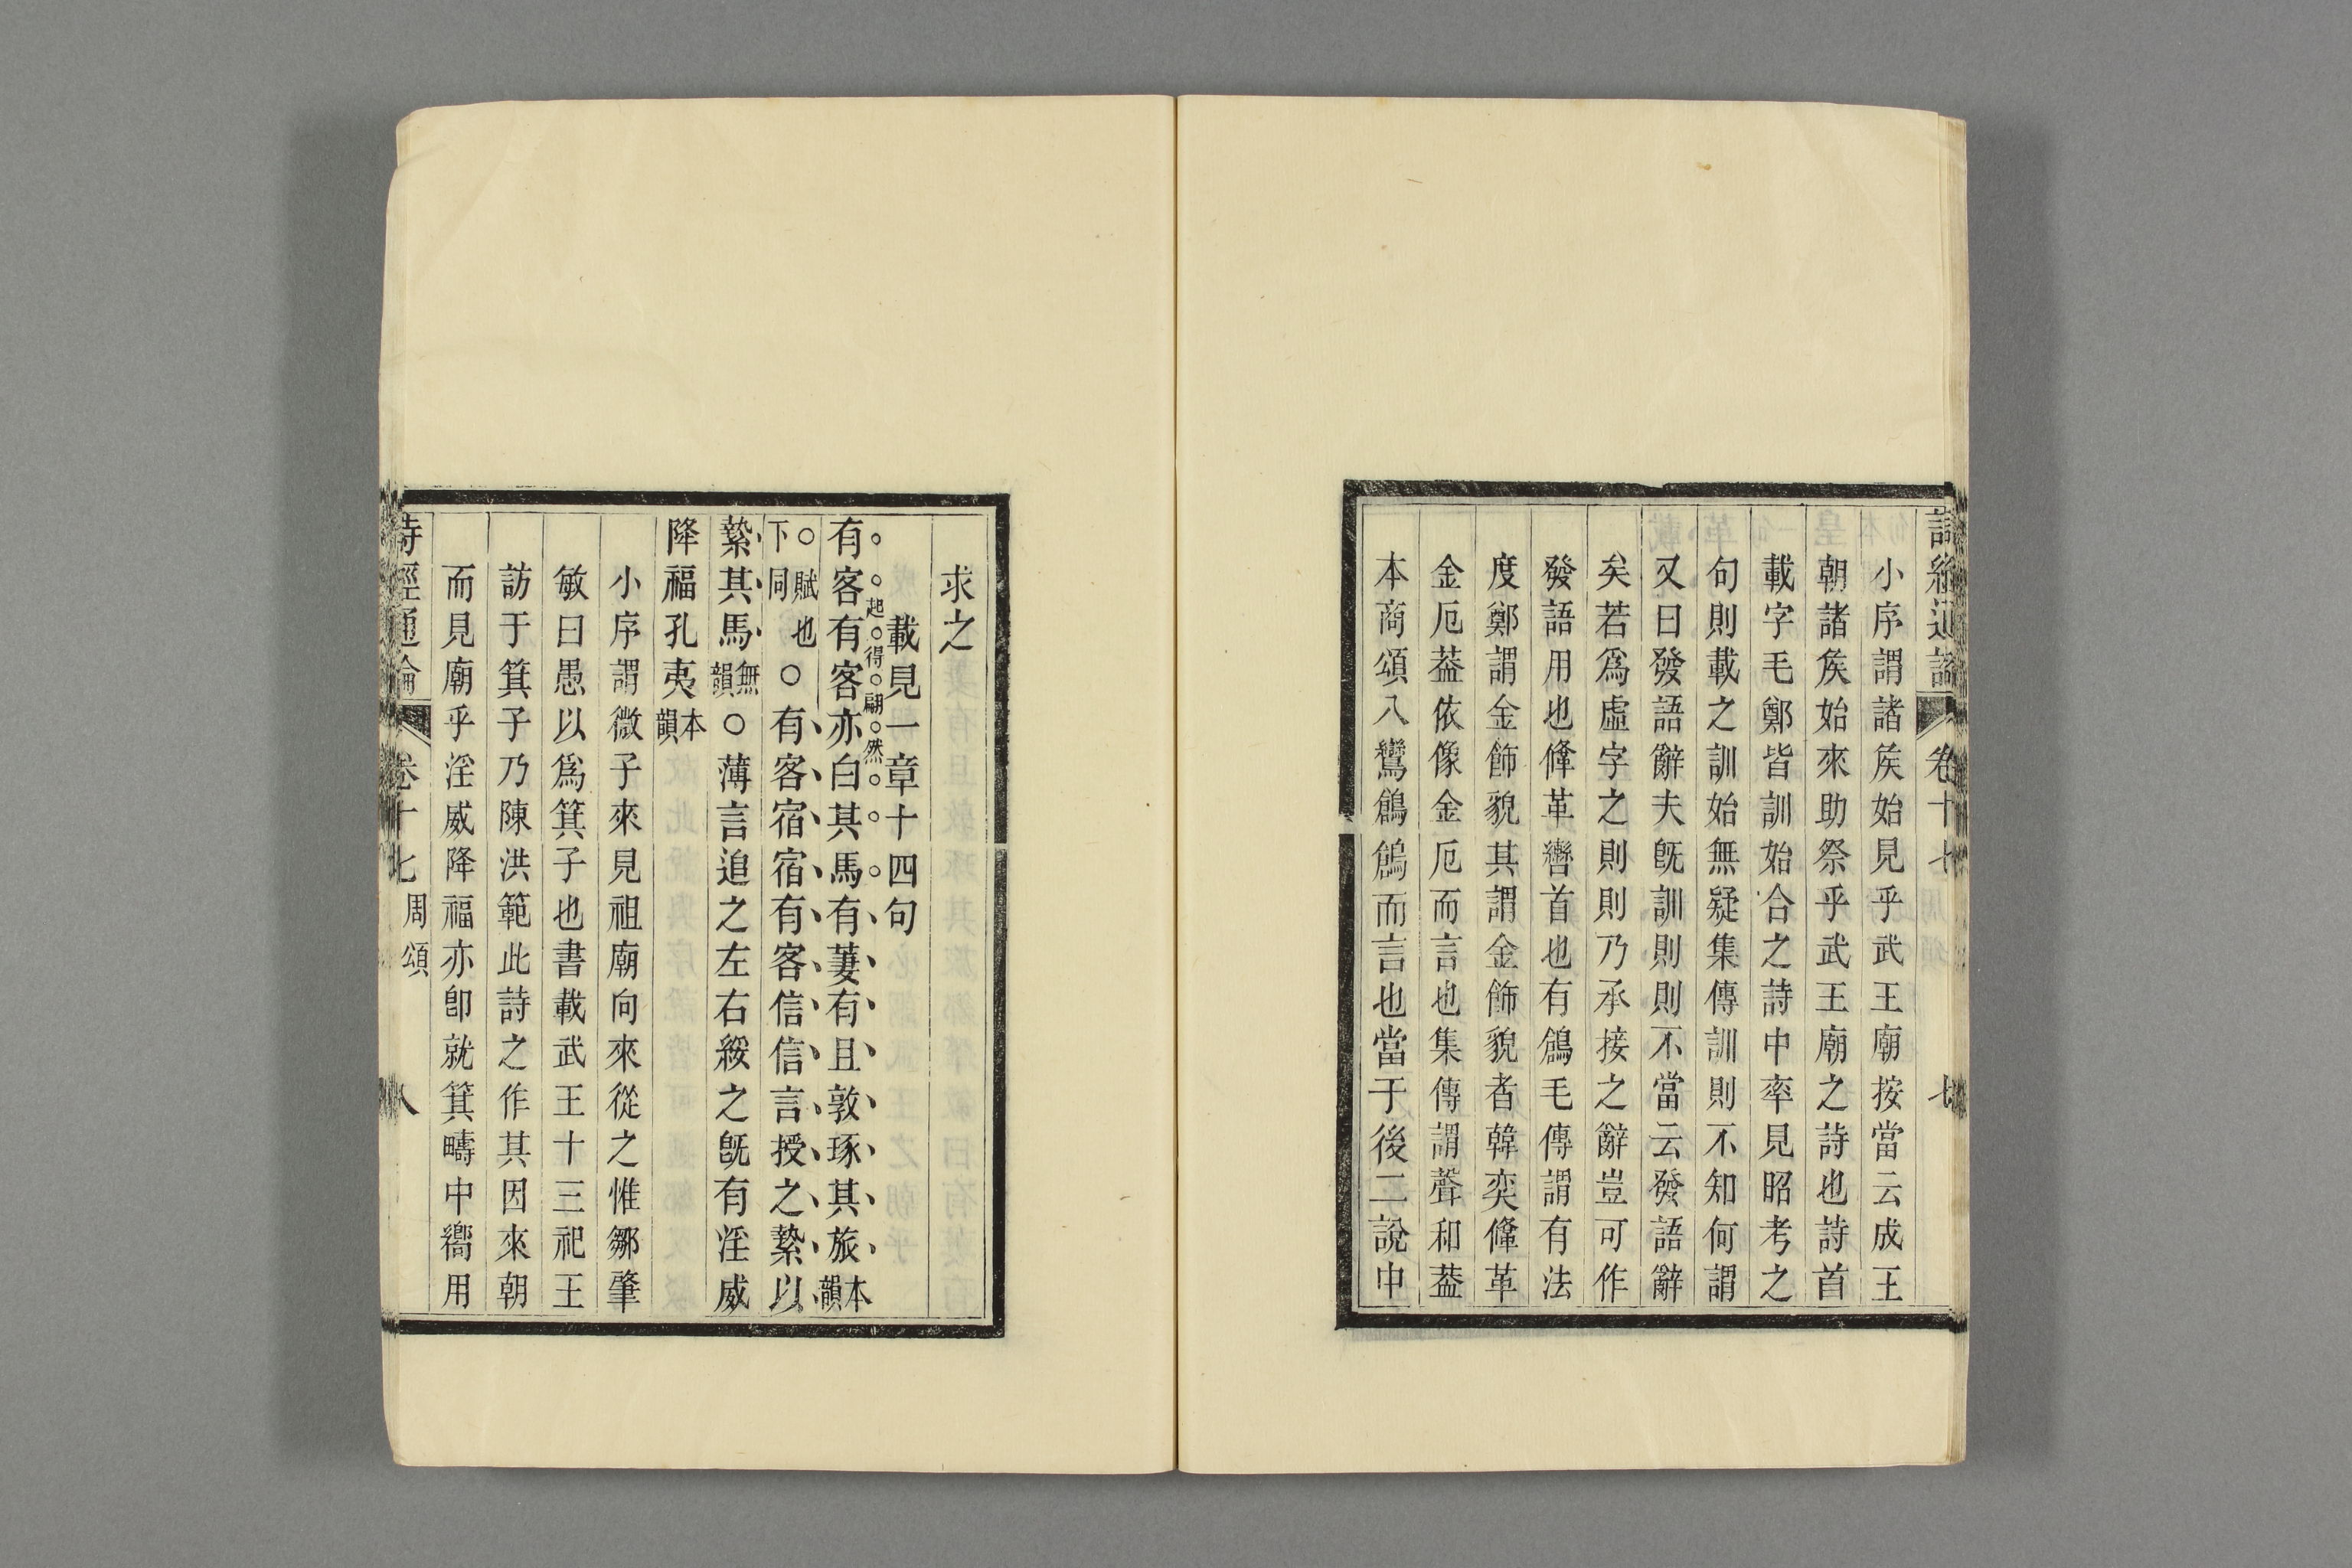 詩經通論 卷十七 七
小序謂諸矦始見乎武王廟按當云成王
朝諸矦始來助祭乎武王廟之詩也詩首
載字毛鄭皆訓始合之詩中率見昭考之
句則載之訓始無疑集傳訓則不知何謂
又曰發語辭夫旣訓則則不當云發語辭
矣若爲虛字之則則乃承接之辭豈可作
發語用也鞗革轡首也有鶬毛傳謂有法
度鄭謂金飾貌其謂金飾貌者韓奕鞗革
金厄葢依像金厄而言也集傳謂聲和葢
本商頌八鸞鶬鶬而言也當于後二說中
求之
載見一章十四句
起得翩然
有客有客亦白其馬有萋有且敦琢其旅本韻
○賦也下同○有客宿宿有客信信言授之縶以
縶其馬無韻○薄言追之左右綏之旣有淫威
降福孔夷本韻
小序謂微子來見祖廟向來從之惟鄒肇
敏曰愚以爲箕子也書載武王十三祀王
訪于箕子乃陳洪範此詩之作其因來朝
而見廟乎淫威降福亦卽就箕疇中嚮用
詩經通論 卷十七 周頌 八